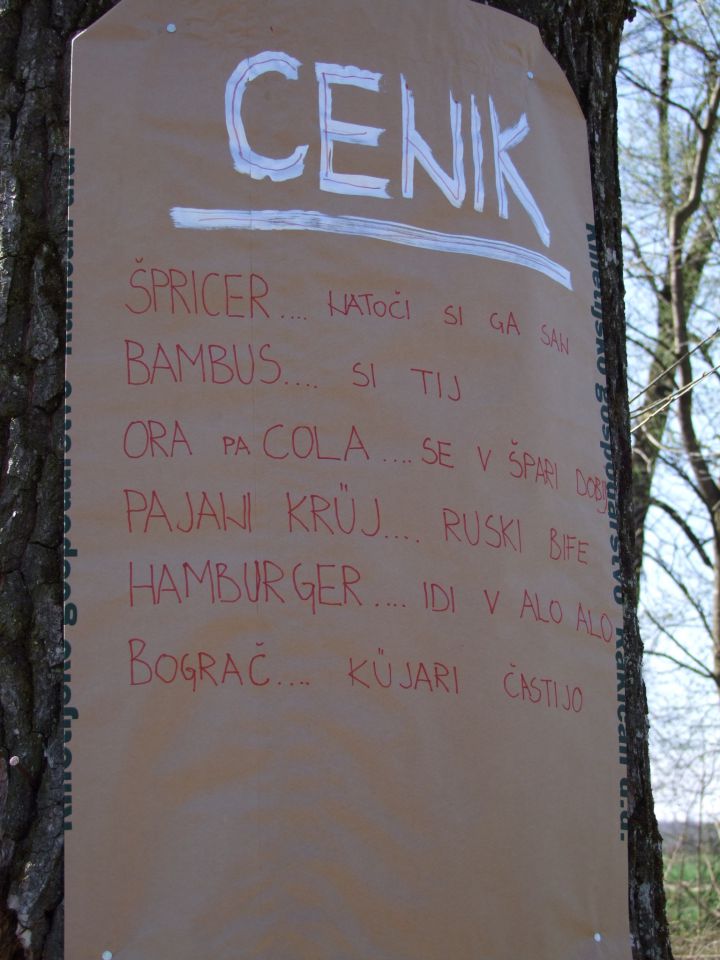 CENIK
ŠPRICER.... NATOČI SI GA SAN
BAMBUS.... SI TIJ
ORA PA COLA....SE V ŠPARI DOBIJ
PAJANI KRÜJ.... RUSKI BIFE
HAMBURGER.... IDI V ALO ALO
BOGRAČ.... KÜJARI ČASTIJO
Kmetijsko gospodarstvo
Kmetijsko gospodarstvo Rakičan d.d.